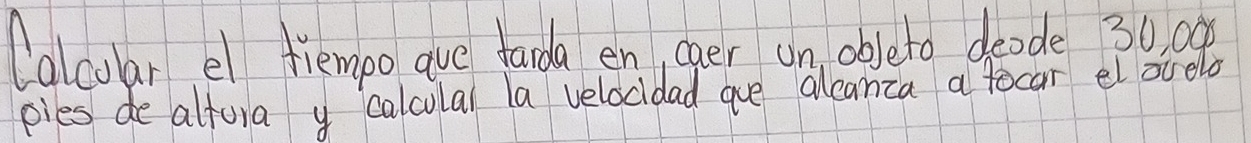 Calcular el tiempo que tarda en caer un objeto desde 30,000
pies de altura y calcular la velocidad que alcanza a tocar el suelo